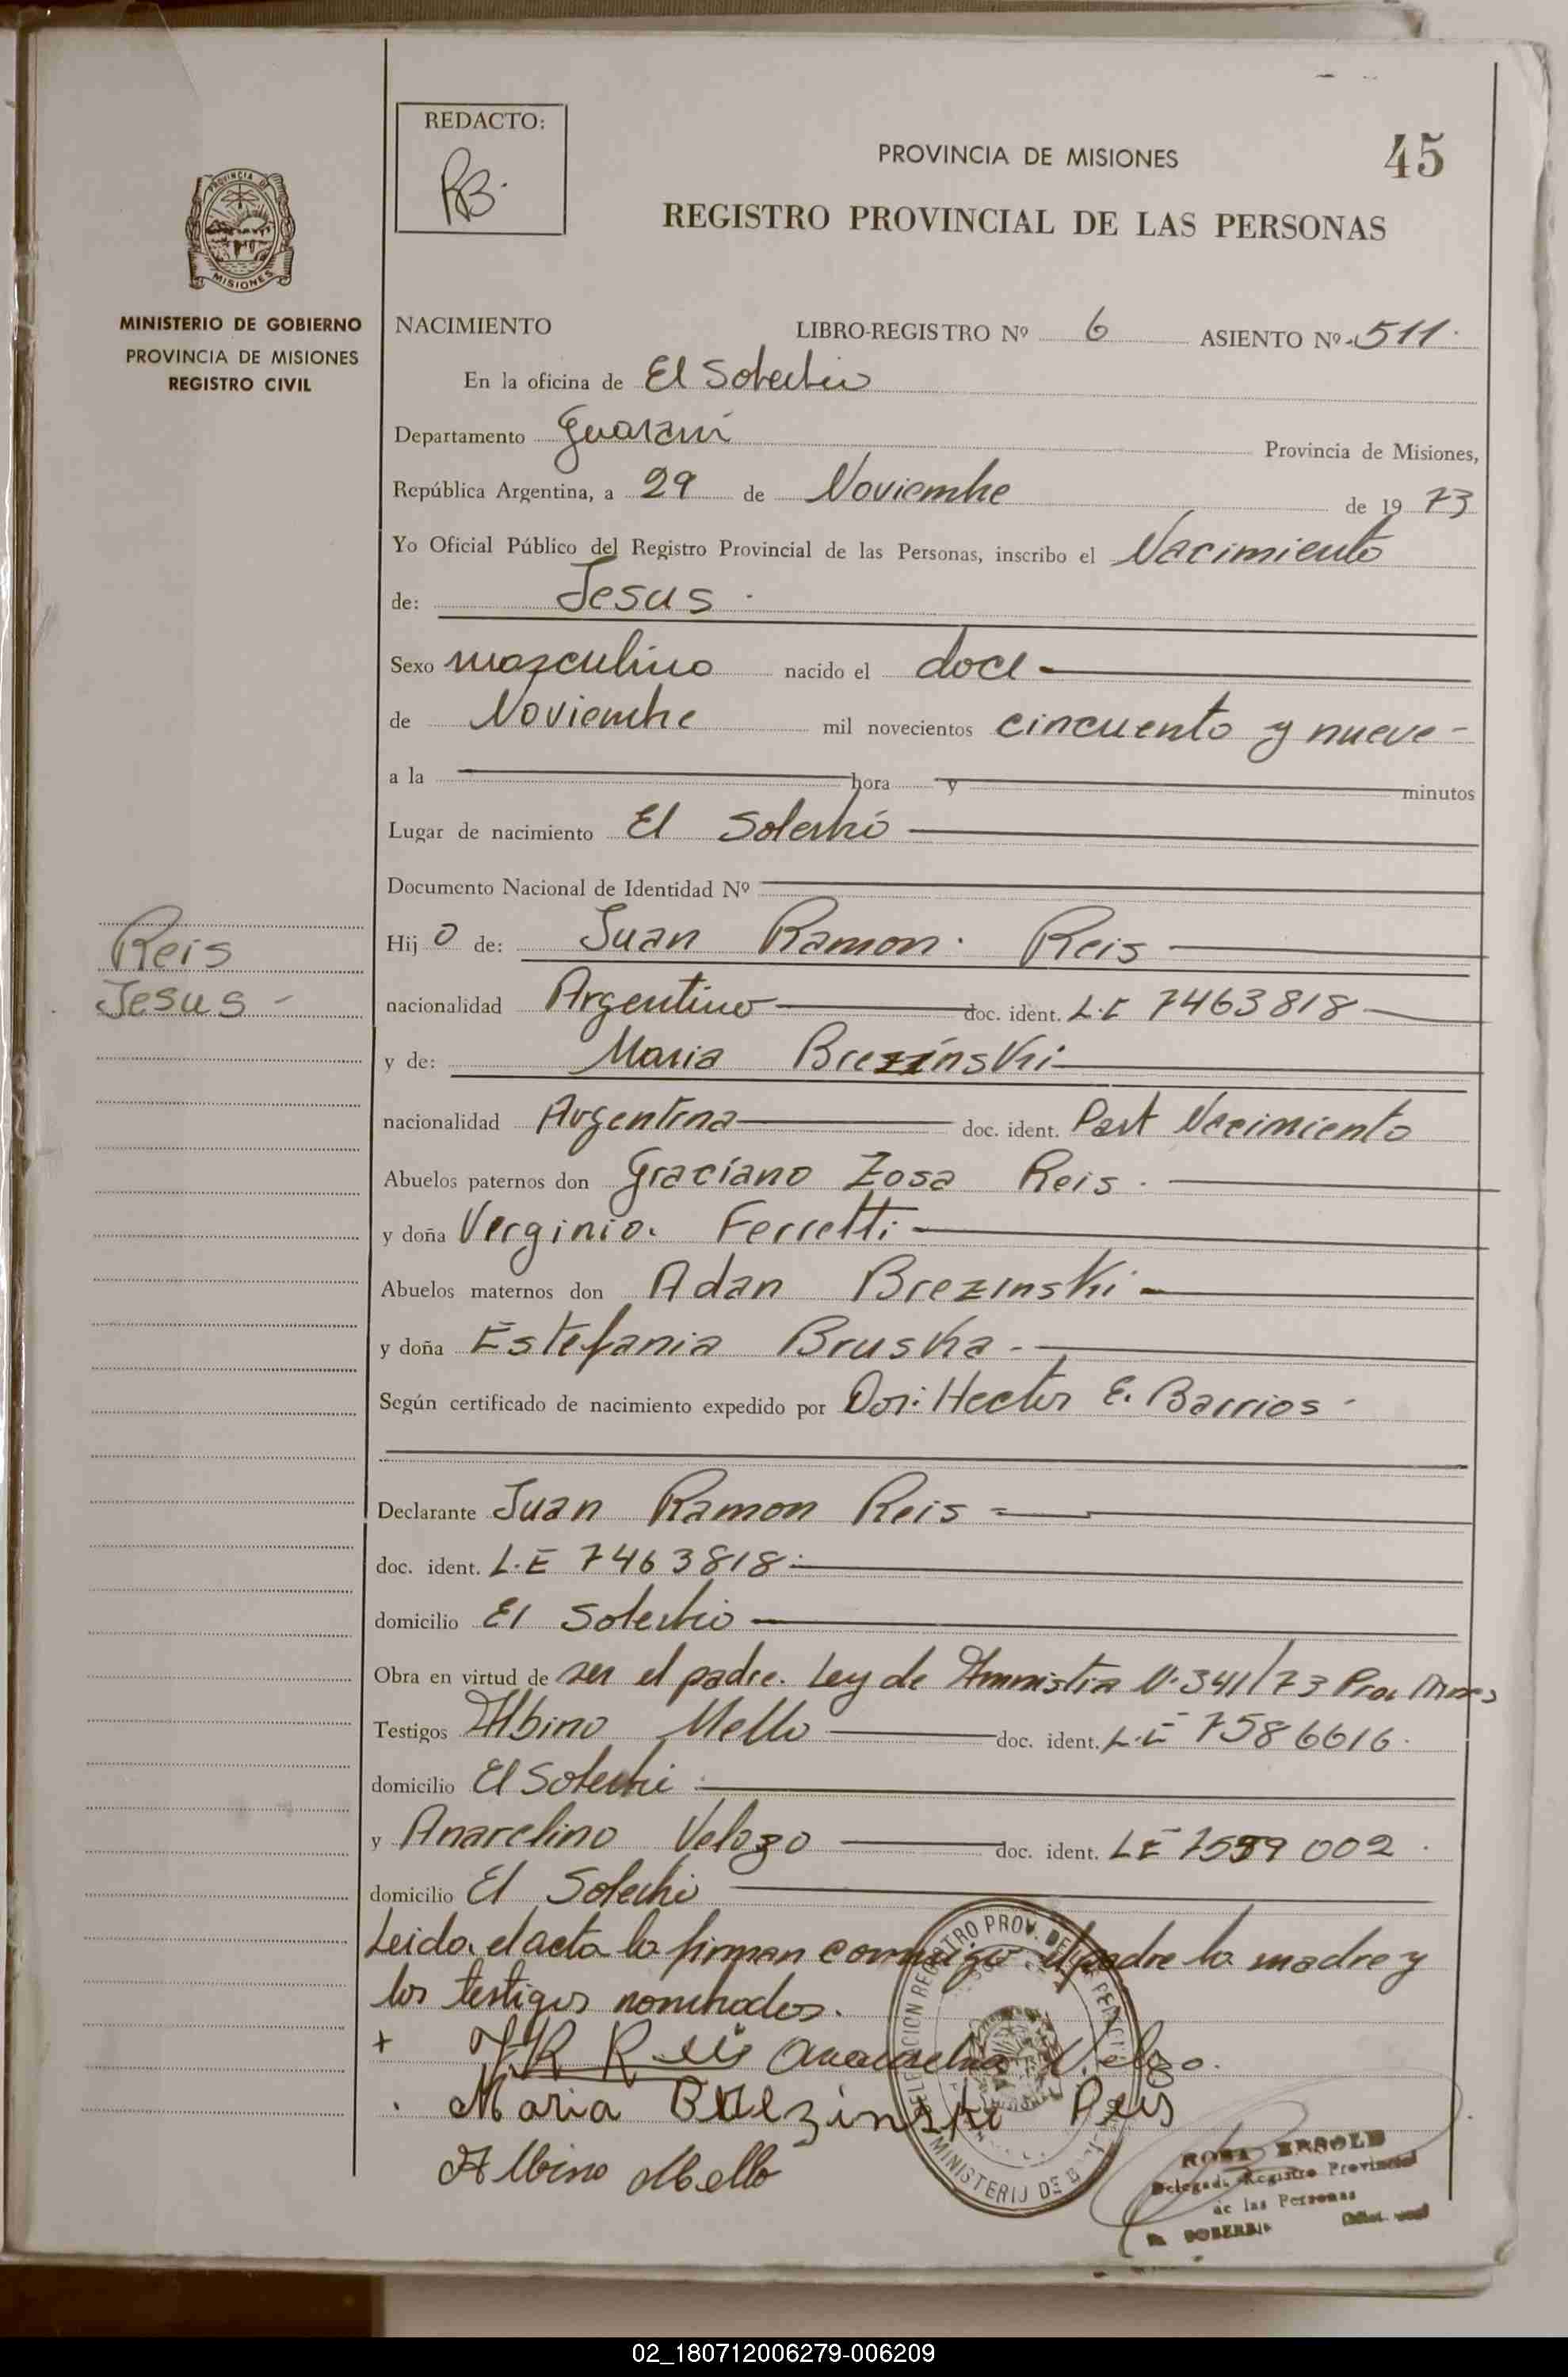 REDACTO:
RB.
PROVINCIA DE MISIONES
45
REGISTRO PROVINCIAL DE LAS PERSONAS
PROVINCIA DE
MISIONES
MINISTERIO DE GOBIERNO
PROVINCIA DE MISIONES
REGISTRO CIVIL
NACIMIENTO LIBRO-REGISTRO Nº 6 ASIENTO Nº 511.
En la oficina de El Soberbio
Departamento Guaraní Provincia de Misiones,
República Argentina, a 29 de Noviembre de 19 73
Yo Oficial Público del Registro Provincial de las Personas, inscribo el Nacimiento
de: Jesus.
Sexo masculino nacido el doce
de Noviembre mil novecientos cincuenta y nueve
a la hora y minutos
Lugar de nacimiento El Soberbio
Documento Nacional de Identidad Nº
Reis
Jesus -
Hij o de: Juan Ramon. Reis
nacionalidad Argentino doc. ident. L.E 7463818
y de: Maria Brezinski
nacionalidad Argentina doc. ident. Part Nacimiento
Abuelos paternos don Graciano Zosa Reis.
y doña Verginia. Ferretti
Abuelos maternos don Adan Brezinski
y doña Estefania Bruska.
Según certificado de nacimiento expedido por Dor: Hector E. Barrios
Declarante Juan Ramon Reis
doc. ident. L.E 7463818
domicilio El Soberbio
Obra en virtud de ser el padre. Ley de Amnistia N. 341/73
Testigos Albino Mello doc. ident. L.E 7586616.
domicilio El Soberbio
y Anarelino Velozo doc. ident. LE 002
domicilio El Soberbio
Leida. el acta la firman conmigo el padre la madre y
los testigos nombrados.
+ JR Reis Velozo.
Maria Brezinski Reis
Albino Mello
MINISTERIO DE
ROSA
Delegada Registro Provincial
de las Personas
SOBERBIO
02_180712006279-006209